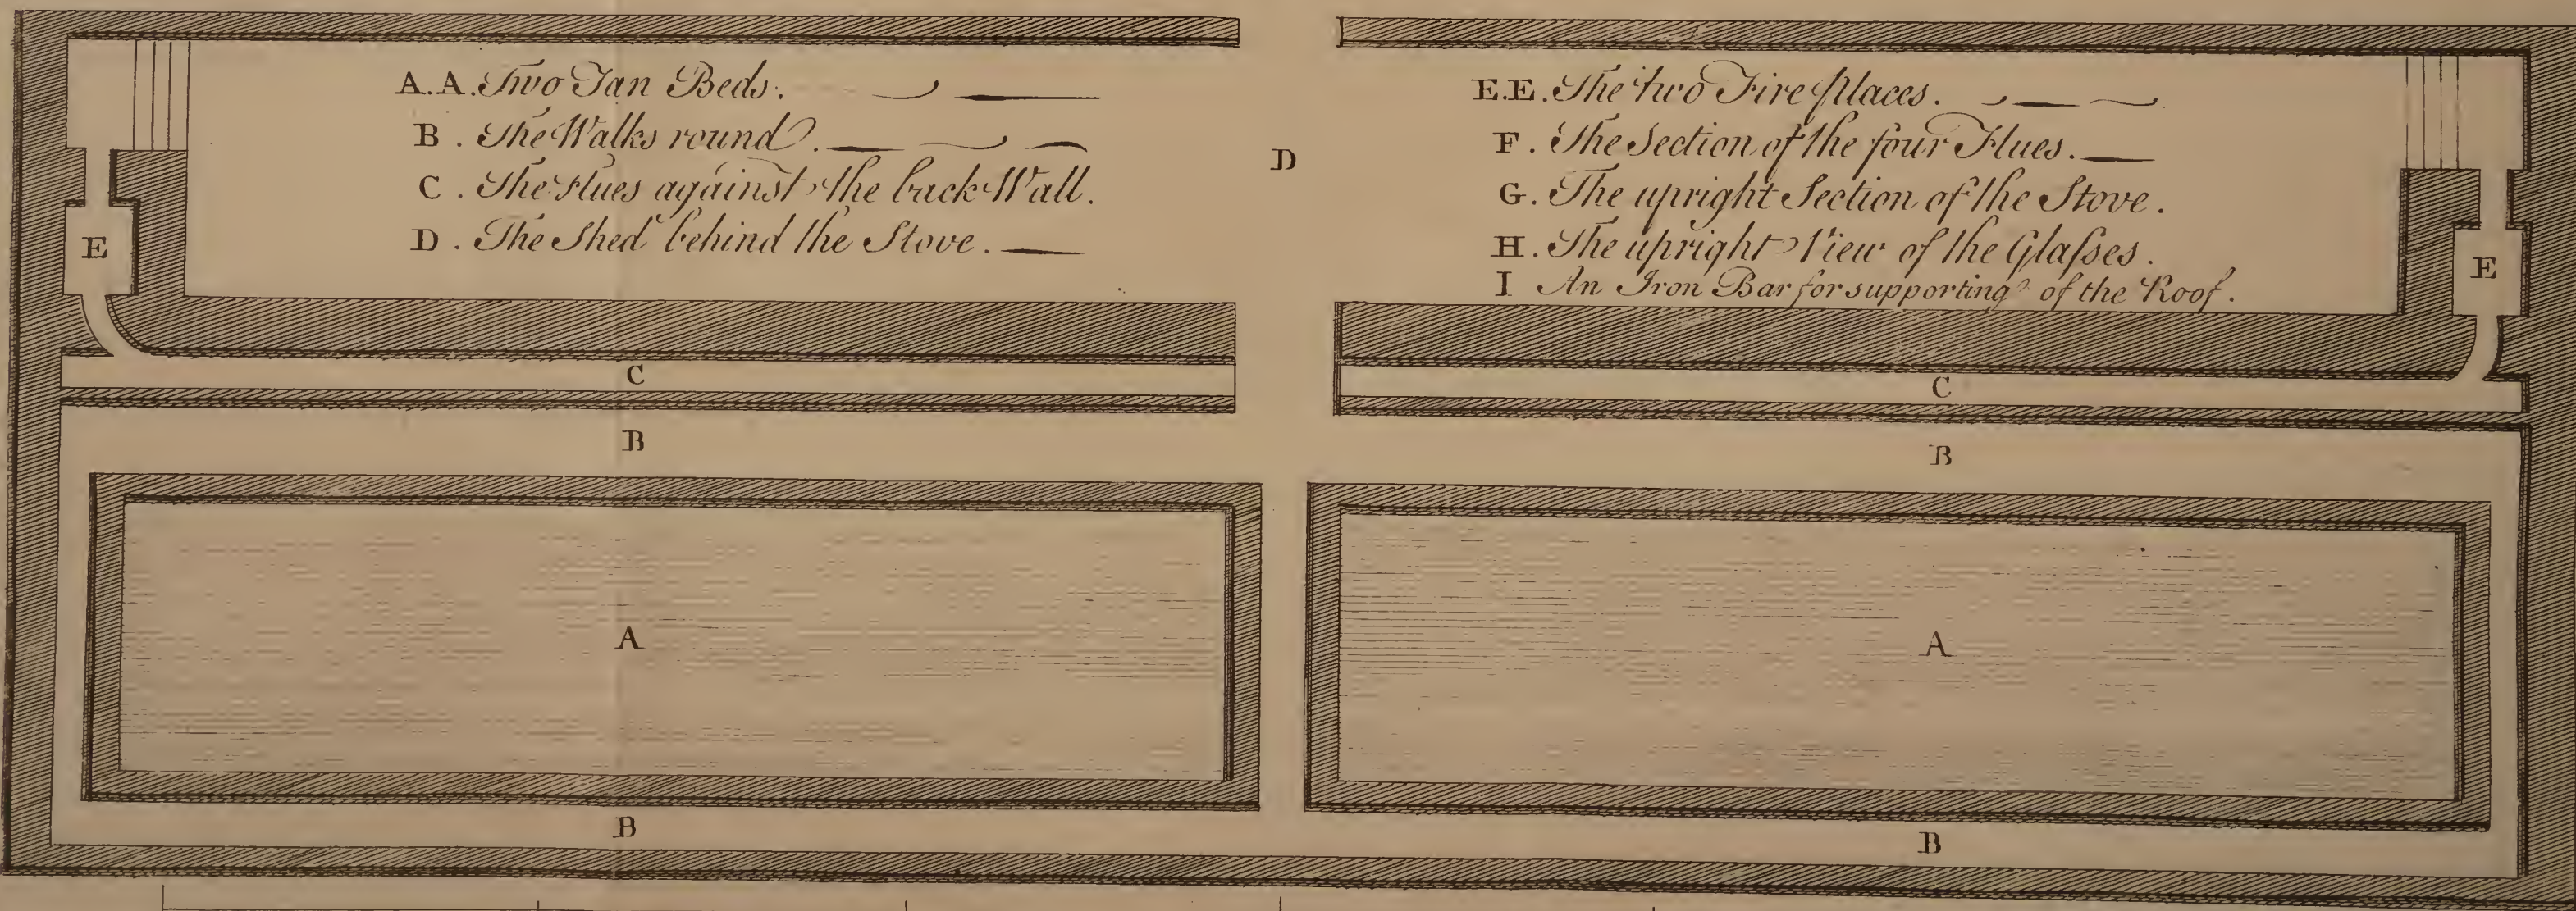 A.A. Two Tan Beds.
B. The Walks round.
C. The Flues against the back Wall.
D. The Shed behind the Stove.
D
E.E. The two Fire places.
F. The Section of the four Flues.
G. The upright Section of the Stove.
H. The upright View of the Glaſses.
I An Iron Bar for supporting of the Roof.
E
E
C
C
B
B
A
A
B
B